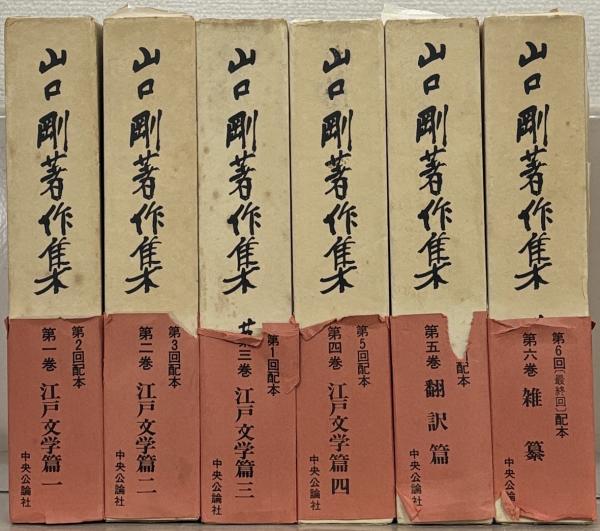 山口剛著作集
第2回配本
第一巻 江戸文学篇一
中央公論社
山口剛著作集
第3回配本
第二巻 江戸文学篇二
中央公論社
山口剛著作集
第1回配本
第三巻 江戸文学篇三
中央公論社
山口剛著作集
第5回配本
第四巻 江戸文学篇四
中央公論社
山口剛著作集
配本
第五巻 翻訳篇
中央公論社
山口剛著作集
第6回〔最終回〕配本
第六巻 雑纂
中央公